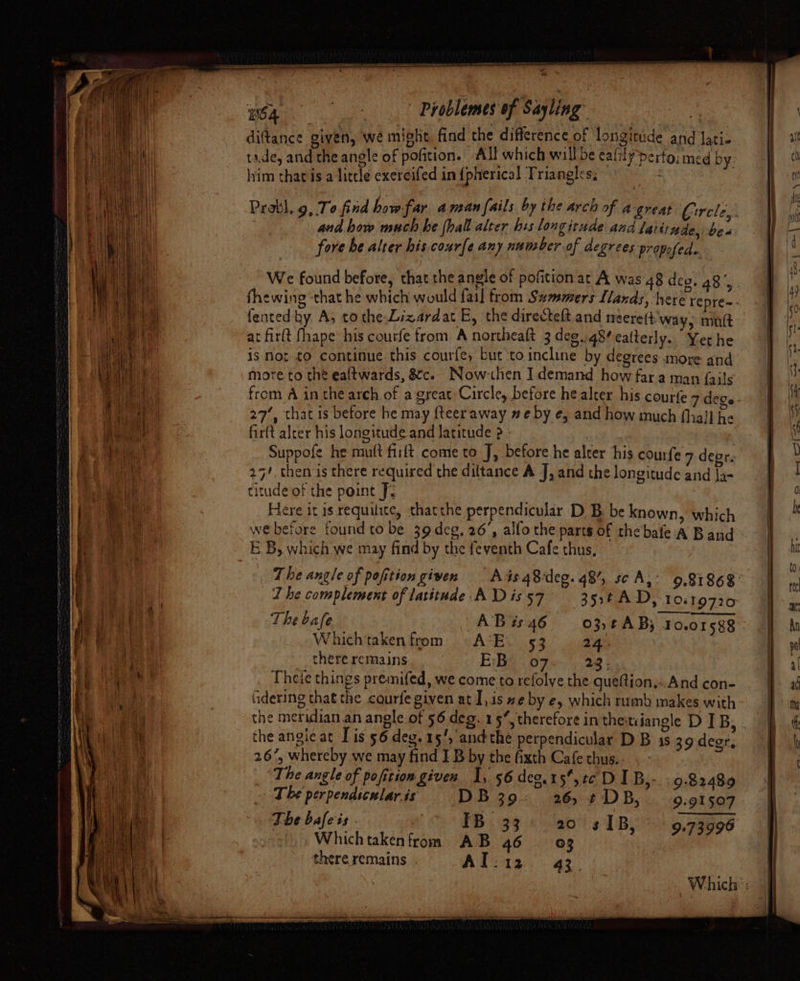 164 Problemes of Sayling
diſtance given, we might find the difference of longitude and lati-
tude, and the angle of poſition. All which will be eaſily perfoꝛmed by
him that is a little exerciſed in ſpherical Triangles,
Probl. 9, To find how far a man ſails by the arch of a great Circle,
and how much he ſhall alter his longitude and latitude, be-
fore he alter his courſe any number of degrees propoſed.
We found before, that the angle of poſition at A was 48 deg. 48′,
ſhewing that he which would ſail from Summers Ilands, here repre-
ſented by A, to the Lizard at E, the directeſt and neereſt way, muſt
at firſt ſhape his courſe from A northeaſt 3 deg. 48′ eaſterly. Yet he
is not to continue this courſe, but to incline by degrees more and
more to the eaſtwards, &c. Now then I demand how far a man ſails
from A in the arch of a great Circle, before he alter his courſe 7 deg.
27′, that is before he may ſteer away ne by e, and how much ſhall he
firſt alter his longitude and latitude ?
Suppoſe he muſt firſt come to J, before he alter his courſe 7 degr.
27′. then is there required the diſtance A J, and the longitude and la-
titude of the point J.
Here it is requiſite, that the perpendicular D B be known, which
we before found to be 39 deg. 26′, alſo the parts of the baſe A B and
E B, which we may find by the ſeventh Caſe thus,
The angle of poſition given A is 48 deg. 48′, sc A, 9.81868
The complement of latitude A D is 57 35, t A D, 10.19720
The baſe A B is 46 03, t A B, 10.01588
Which taken from A E 53 24
there remains E B 07 23
Theſe things premiſed, we come to reſolve the queſtion. And con-
ſidering that the courſe given at I, is ne by e, which rumb makes with
the meridian an angle of 56 deg. 15′, therefore in the triangle D I B,
the angle at I is 56 deg. 15′, and the perpendicular D B is 39 degr.
26′, whereby we may find I B by the ſixth Caſe thus.
The angle of poſition given I, 56 deg. 15′, tc D I B, 9.82489
The perpendicular is D B 39 26, t D B, 9.91507
The baſe is I B 33 20 s I B, 9.73996
Which taken from A B 46 03
there remains A I 12 43
Which